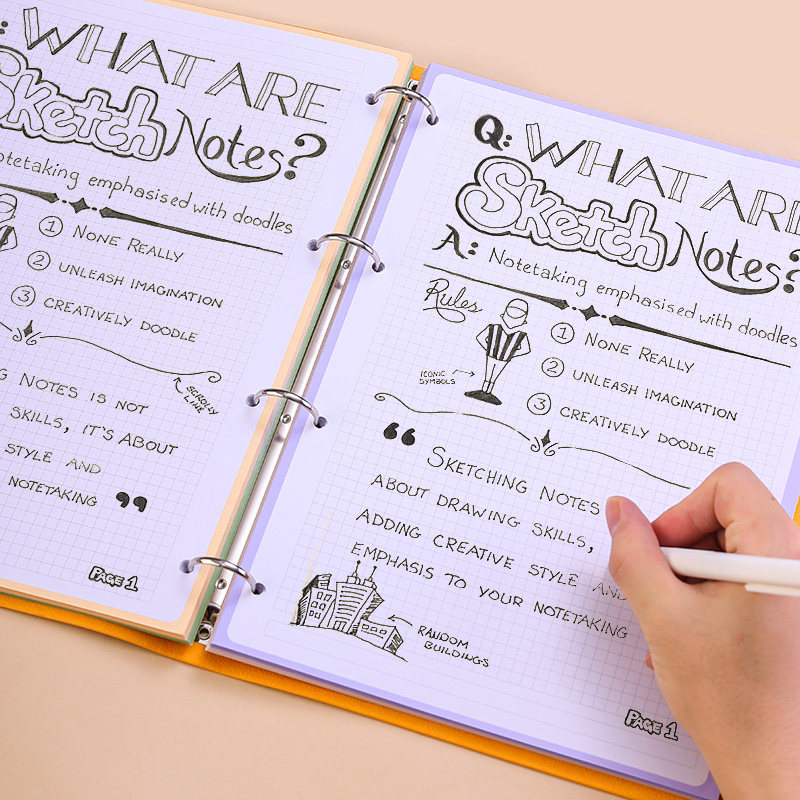 : WHAT ARE
Sketch Notes?
Notetaking emphasised with doodles
1 NONE REALLY
2 UNLEASH IMAGINATION
3 CREATIVELY DOODLE
SCROLLY
LINE
NOTES IS NOT
SKILLS, IT'S ABOUT
STYLE AND
NOTETAKING ”
PAGE 1
Q: WHAT ARE
Sketch Notes?
A: Notetaking emphasised with doodles
Rules
1 NONE REALLY
2 UNLEASH IMAGINATION
3 CREATIVELY DOODLE
ICONIC
SYMBOLS
“ SKETCHING NOTES
ABOUT DRAWING SKILLS,
ADDING CREATIVE STYLE AND
EMPHASIS TO YOUR NOTETAKING
RANDOM
BUILDINGS
PAGE 1